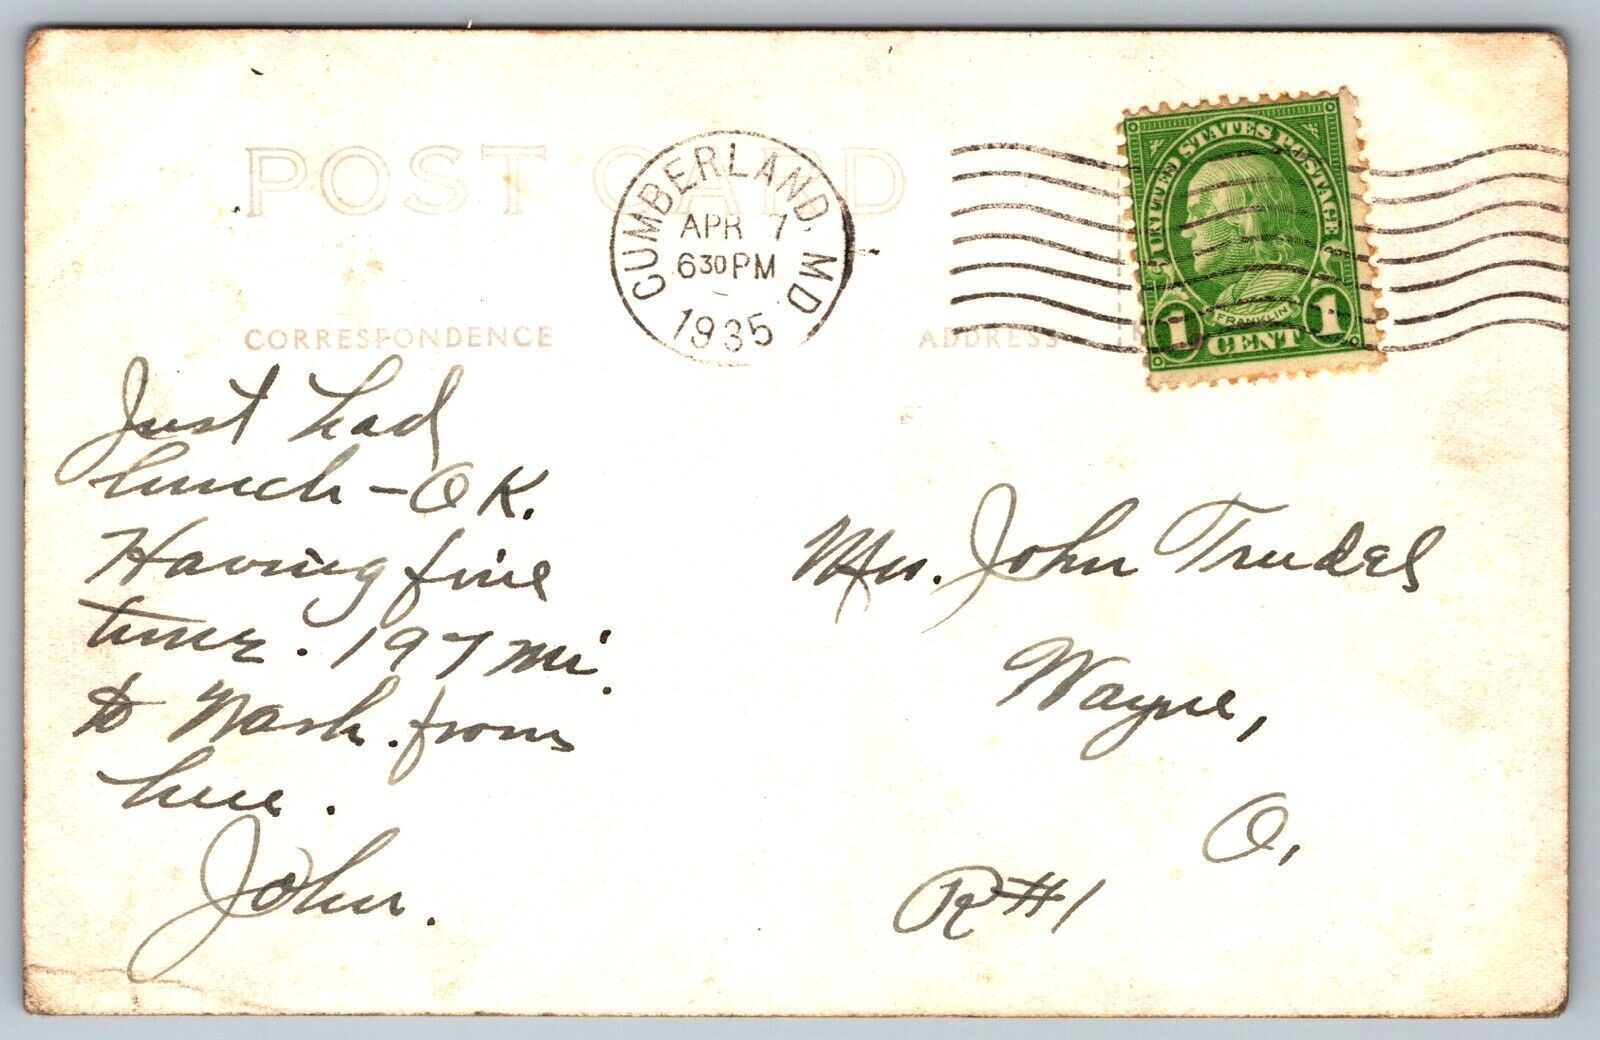 POST CARD
CUMBERLAND, MD.
APR 7
630 PM
1935
UNITED STATES POSTAGE
FRANKLIN
1 CENT 1
CORRESPONDENCE
ADDRESS
Just had
lunch - OK.
Having fine
time. 197 mi.
to Wash. from
here.
John.
Mrs. John Trudel
Wayne,
O.
R#1